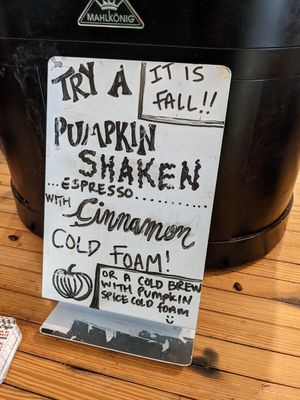 MAHLKÖNIG
TRY A
IT IS
FALL!!
PUMPKIN
SHAKEN
...ESPRESSO...
WITH Cinnamon
COLD FOAM!
OR A COLD BREW
WITH PUMPKIN
SPICE COLD FOAM